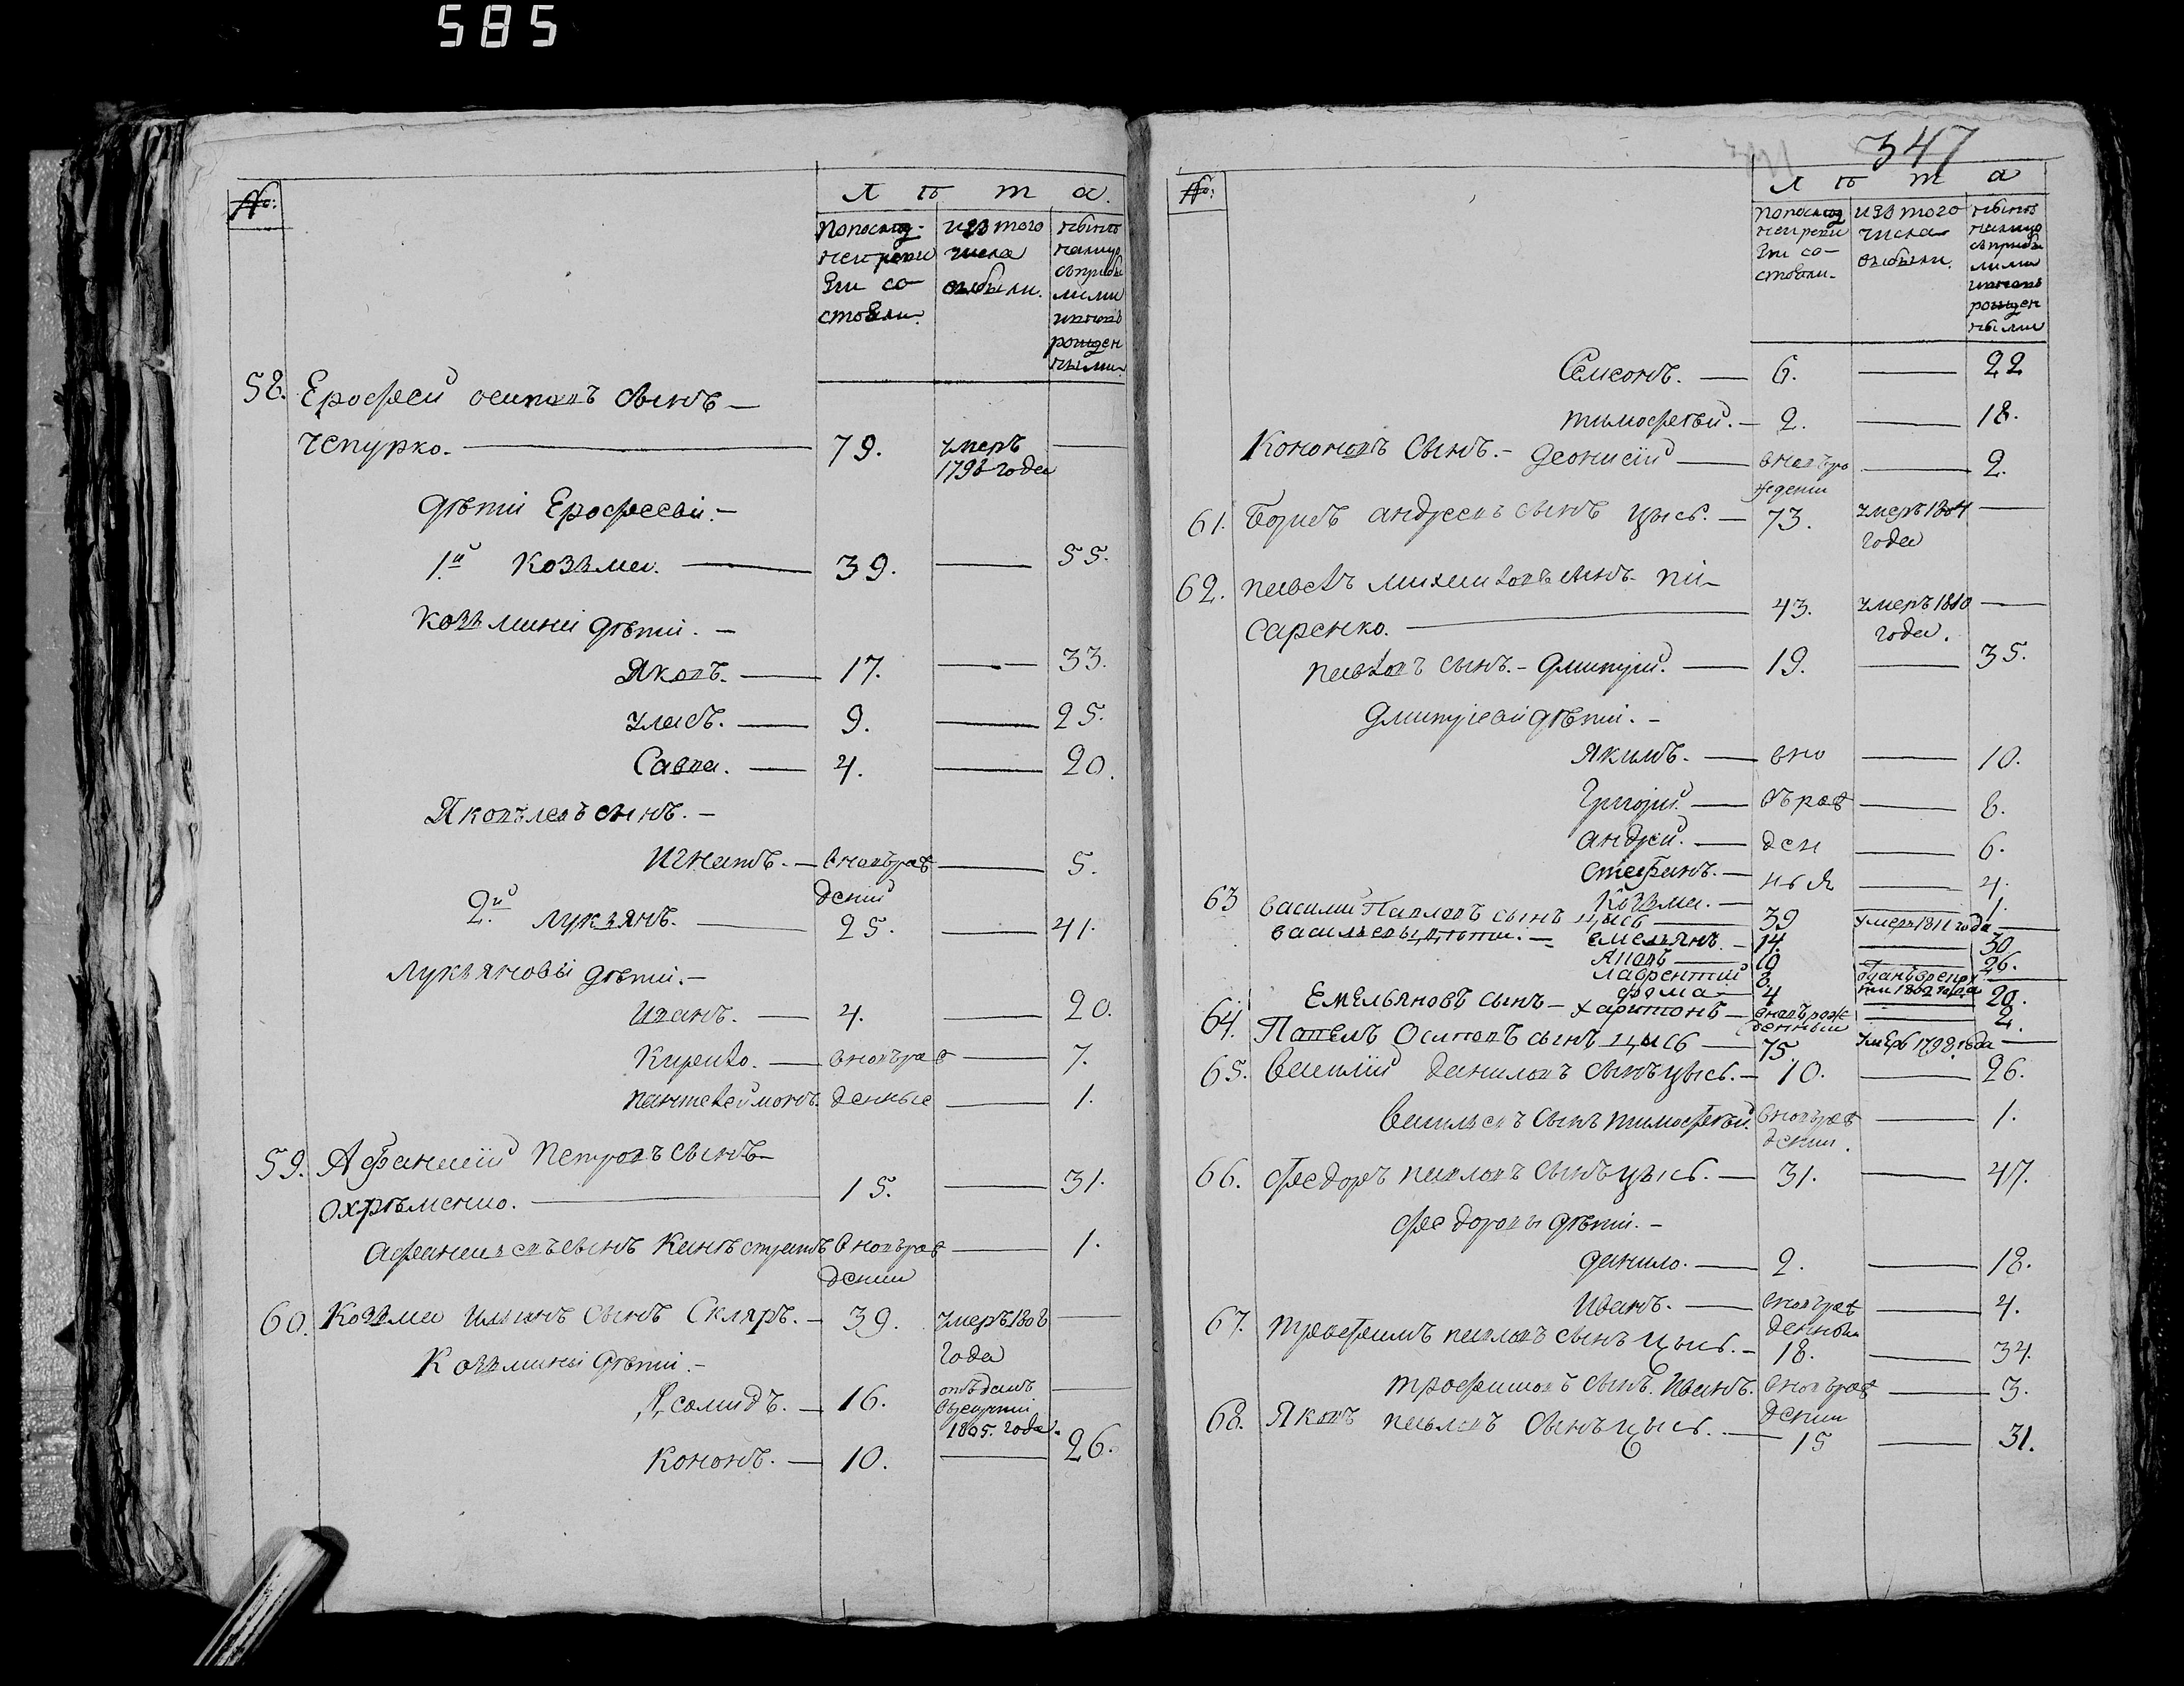 585
№:
Л ѣ т а.
Попослед-
ней реви
зіи со-
стояли.
изъ того
числа
выбыли.
нынѣ
налицо
съприбы
лыми
иновь
рожден
ными
58. Ерофей осиповъ сынъ —
чепурко. — 79. умеръ —
1796 года
дѣти Ерофееви. —
1.й Козъма. — 39. — 55.
Козъмини дѣти. —
Яковъ. — 17. — 33.
улас. — 9. — 25.
Савва. — 4. — 20.
Яковълевъ сынъ. —
Игнатъ. — вновъро — 5.
дений
2.й Лукъянъ. — 25. — 41.
Лукъяновы дѣти. —
Иванъ. — 4. — 20.
Кирило. — вновъро — 7.
пантелеймонъ. денные — 1.
59. Афанасій Петровъ сынъ —
охрѣменко. — 15. — 31.
афанасъевъ сынъ Калѣстратъ вновъро — 1.
дении
60. Козъма ильинъ сынъ Скляръ. — 39. умеръ 1808 —
года
Козъмины дѣти. —
16. отъданъ —
1805. года.
Кононъ. — 10. — 26.
347
№:
Л ѣ т а
Попослед
ней реви
зіи со-
стояли.
изъ того
числа
выбыли.
нынѣ
налицо
съприбы
лыми
иновь
рожден
ными
Семеонъ. — 6. — 22
тимофей. — 2. — 18.
Кононовъ сынъ. — деонисій — вновъро — 2.
ждени
61. Борисъ андреевъ сынъ цысь. — 73. умеръ 1804 —
года
62. павелъ михайловъ сынъ пи-
саренко. — 43. умеръ 1810 —
года.
павловъ сынъ. — дмитрий. — 19. — 35.
дмитриеви дѣти. —
Якимъ. — вно — 10.
Григорий. — въро — 8.
андрей. — ден — 6.
Стефанъ. — ныя — 4.
Козъма. — 1.
63 василий Павловъ сынъ цысь — 39 умеръ 1811 года —
васильевы дѣти. — емельянъ. — 14. — 30
Яковъ — 10 — 26.
Лаврентий 8.
фома — 4 — 20.
Емельяновъ сынъ — харитонъ — вновърож — 2.
денный
64. Павелъ Осиповъ сынъ цысь — 75. умеръ 1798 года —
65. Василий даниловъ сынъ цысь. — 10. — 26.
Васильевъ сынъ тимофей. вновъро — 1.
дении.
66. федоръ павловъ сынъ цысь. — 31. — 47.
федоровы дѣти. —
данило. — 2. — 18.
иванъ. — вновъро — 4.
денный
67. трофимъ павловъ сынъ цысь. — 18. — 34.
трофимовъ сынъ. иванъ. вновъро — 3.
дении
68. Яковъ павловъ сынъ цысь. — 15 — 31.